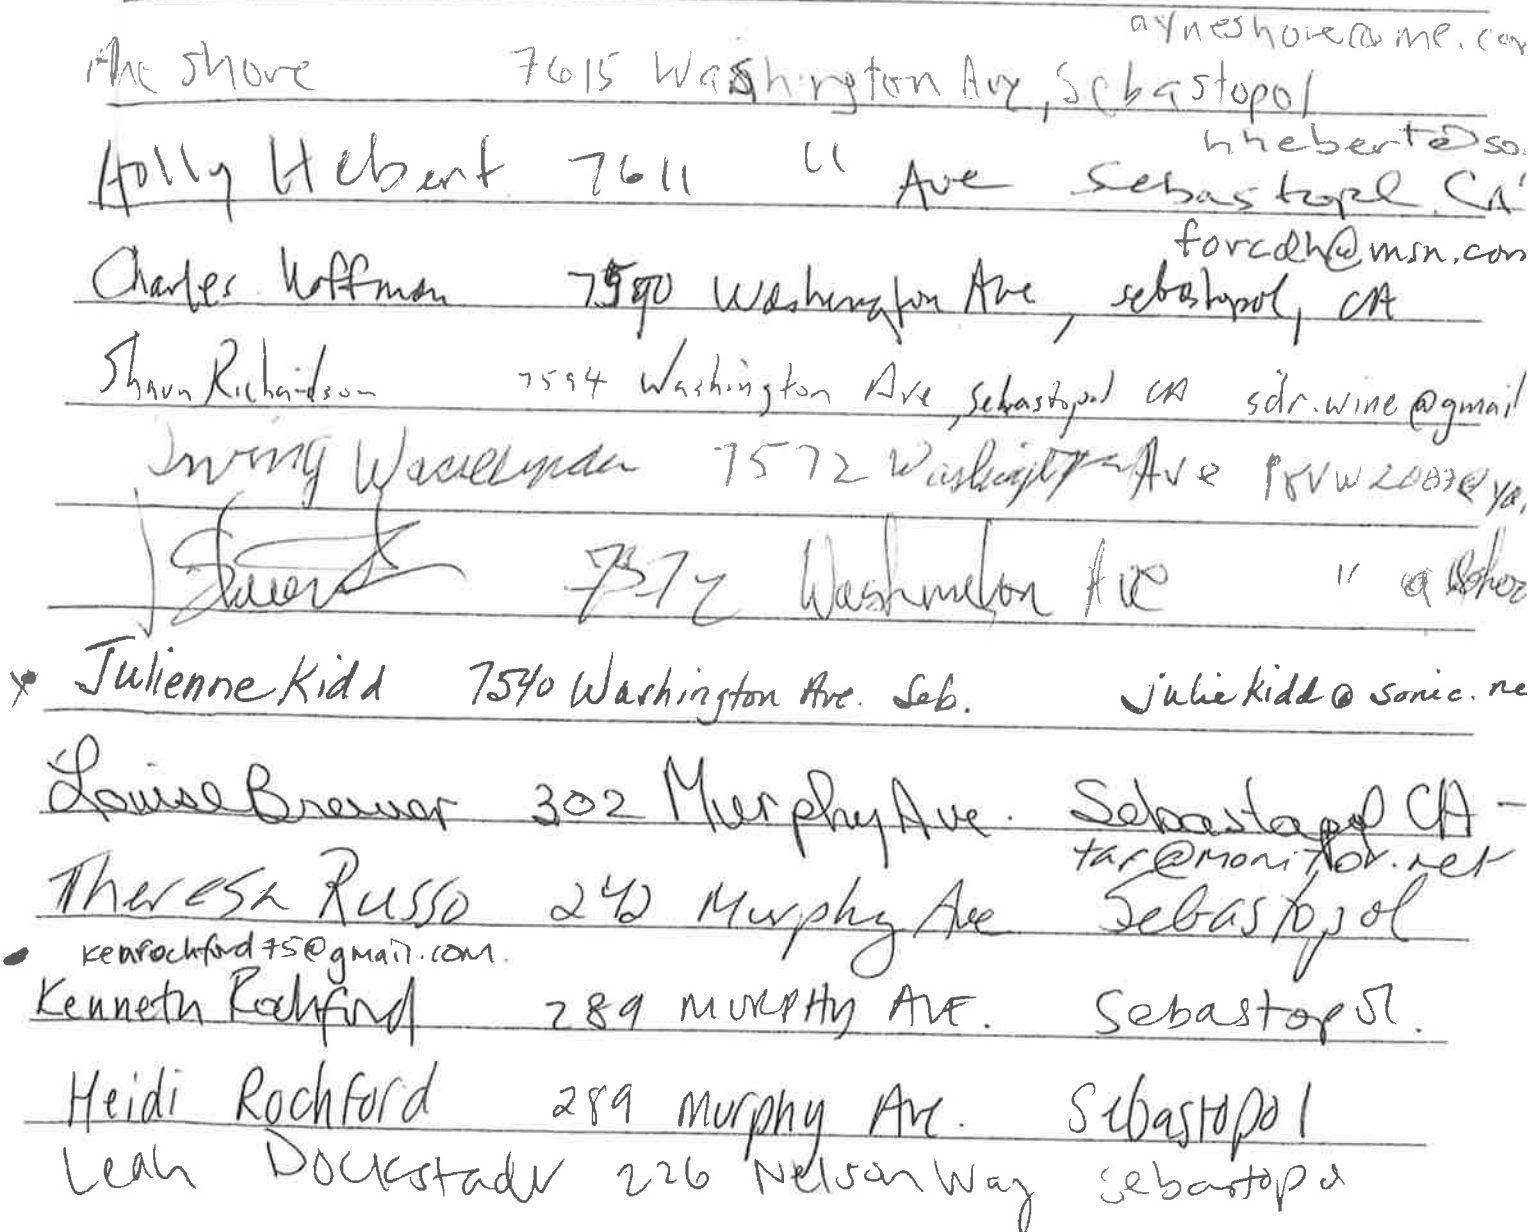 ayneshore@me.co
Shore 7615 Washington Ave, Sebastopol
hhebert@so
Holly Hebert 7611 " Ave Sebastopol CA
forcdh@msn.com
Charles Hoffman 7590 Washington Ave, Sebastopol, CA
Shaun Richardson 7594 Washington Ave, Sebastopol CA sdr.wine@gmail
Irving 7572 Washington Ave
7572 Washington Ave "
x Julienne Kidd 7540 Washington Ave. Seb. juliekidd@sonic.ne
Louise Brewer 302 Murphy Ave. Sebastopol CA -
tar@monitor.net
Theresa Russo 242 Murphy Ave Sebastopol
kenrochford75@gmail.com.
Kenneth Rochford 289 MURPHY AVE. Sebastopol.
Heidi Rochford 289 Murphy Ave. Sebastopol
Leah Dockstader 226 Nelson Way Sebastopol